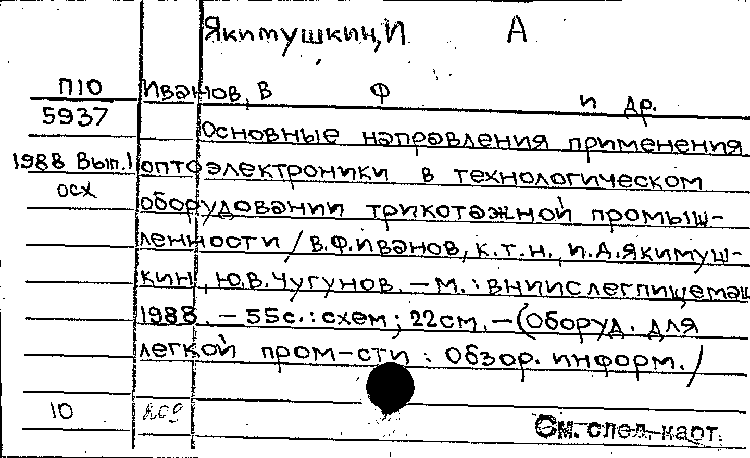 Якимушкин, И А
П10 Иванов, В Ф и др.
5937
Основные направления применения
1988 Вып.1 оптоэлектроники в технологическом
осх
оборудовании трикотажной промыш-
ленности / В.Ф.Иванов, к.т.н., И.А.Якимуш-
кин, Ю.В.Чугунов. - М.: ВНИИСлегпищемаш
1988. - 55с.: схем; 22см. - (Оборуд. для
легкой пром-сти : Обзор. информ. /
10
См. след. карт.